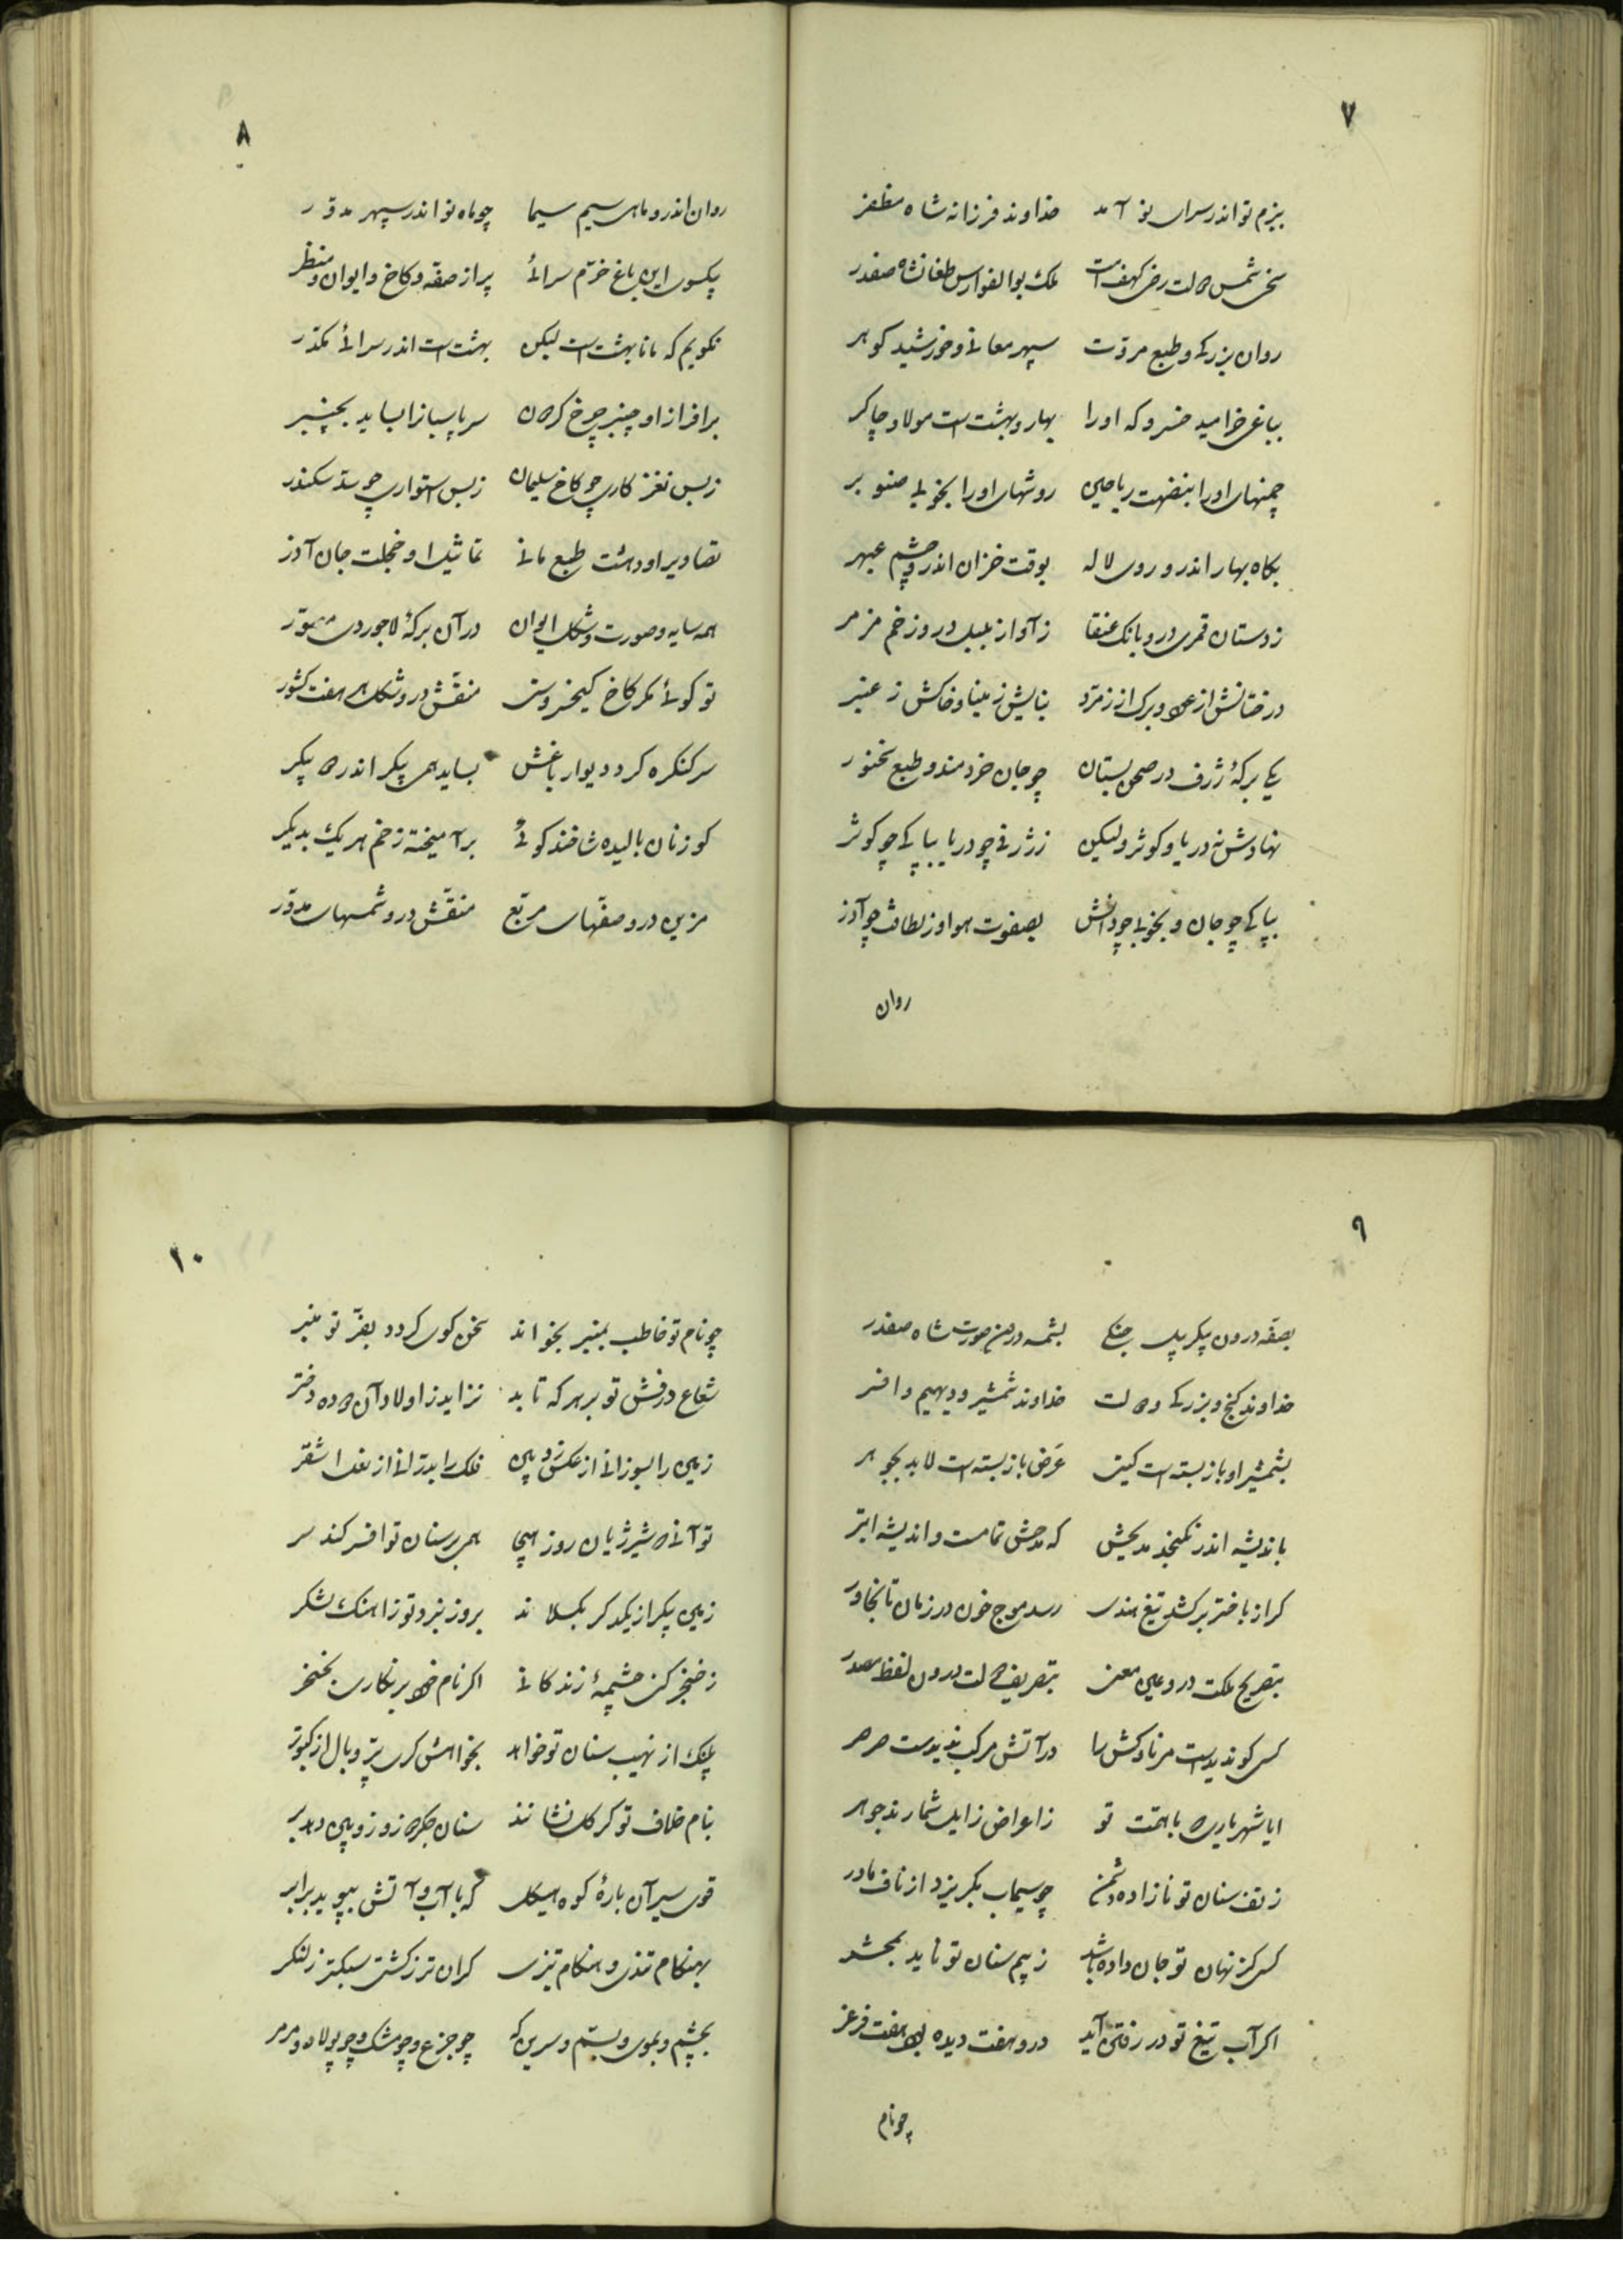 ۷
بنزم نو اندر سرای نو آمد خداوند فرزانه شاه مظفر
شمس دولت کهف امت ملک بوالفوارس طغانشاه صفدر
روان بزرگی و طبع مروّت سپهر معانی و خورشید گوهر
بباغی خرامید خسرو که اورا بهار و بهشت است مولا و چاکر
چمنهای اورا ریاحین روشهای اورا بخوبی صنوبر
بگاه بهار اندرو روی لاله بوقت خزان اندرو چشم عبهر
ز دستان قمری درو بانگ عنقا ز آواز بلبل درو زخم مزمر
درختانش از عود و برگ از زمرّد نباتش ز مینا و خاکش ز عنبر
یکی برکهٔ ژرف در صحن بستان چو جان خردمند و طبع سخنور
نهادش نه دریا و کوثر ولیکن ز ژرفی چو دریا بپاکی چو کوثر
بپاکی چو جان و بخوبی چو دانش بصفوت هوا و ز لطافت چو آذر
روان
۸
روان اندرو ماهی سیم سیما چو ماه نو اندر سپهر مدوّر
یکسوی این باغ خرّم سرائی پر از صفّه و کاخ و ایوان و منظر
نگویم که مانا بهشت است لیکن بهشت است اندر سرائی مکدّر
بر افراز او چنبر چرخ گردون سر پاسبانرا بساید بچنبر
ز بس نغز کاری چو کاخ سلیمان ز بس استواری چو سدّ سکندر
تصاویر او دهشت طبع مانی تماثیل او خجلت جان آذر
همه سایه و صورت و شکل ایوان در آن برکهٔ لاجوردی مصوّر
تو گوئی مگر کاخ کیخسروست منقّش درو شکل هر هفت کشور
سر کنگره گرد دیوار باغش بساید همی پیکر اندر دو پیکر
گوزنان بالیده شاخند گوئی بر آمیخته ز خم هر یک بدیگر
مزین درو صفّهای مربّع منقّش درو شمسهای مدوّر
۹
بصفّه درون پیکر پیل جنگی بشمسه درون صورت شاه صفدر
خداوند گنج و بزرگی و دولت خداوند شمشیر و دیهیم و افسر
بشمشیر او باز بسته است گیتی عرض باز بسته است لابد بجوهر
باندیشه اندر نگنجد مدیحش که مدحش تمامست و اندیشه ابتر
گر از باختر برکشد تیغ هندی رسد موج خون در زمان تا بخاور
بتصریح ملکت درو عین معنی بتصریف دولت درون لفظ مصدر
کسی کو ندیدست مر ناوکش را در آتش مرکب ندیدست صرصر
ایا شهریاری که با همّت تو ز اعراض زایل شمارند جوهر
ز تف سنان تو نازاده دشمن چو سیماب بگریزد از ناف مادر
کسی کز نهان تو جان داده باشد ز بیم سنان تو ناید بمحشر
اگر آب تیغ تو در رفتن آید درو هفت دریا بود هفت فرغر
چو نام
۱۰
چو نام تو خاطب بمنبر بخواند سخن گوی گردد بفرّ تو منبر
شعاع درفش تو بر هر که تابد نزاید ز اولاد آن دوده دختر
زمین را بسوزانی از عکس زوبین فلک را بدرّانی از نعل اشقر
تو آنی که شیر ژیان روز هیجا همی بر سنان تو افسر کند سر
زمین پیکر از یکدگر بگسلاند بروز نبرد تو ز آهنگ لشکر
ز خنجر کنی چشمهٔ زندگانی اگر نام خود بر نگاری بخنجر
پلنگ از نهیب سنان تو خواهد بخواهش گری پرّ و بال از کبوتر
بنام خلاف تو گر گل نشانند سنان جگر دوز و زوبین دهد بر
قوی سیر آن بارهٔ کوه هیکل که با آب و آتش بپوید برابر
بهنگام تندی و هنگام تیزی گران تر ز کشتی سبکتر ز لنگر
بچشم و بموی و بسمّ و سرین که چو جزع و چو مشک و چو پولاد و مرمر